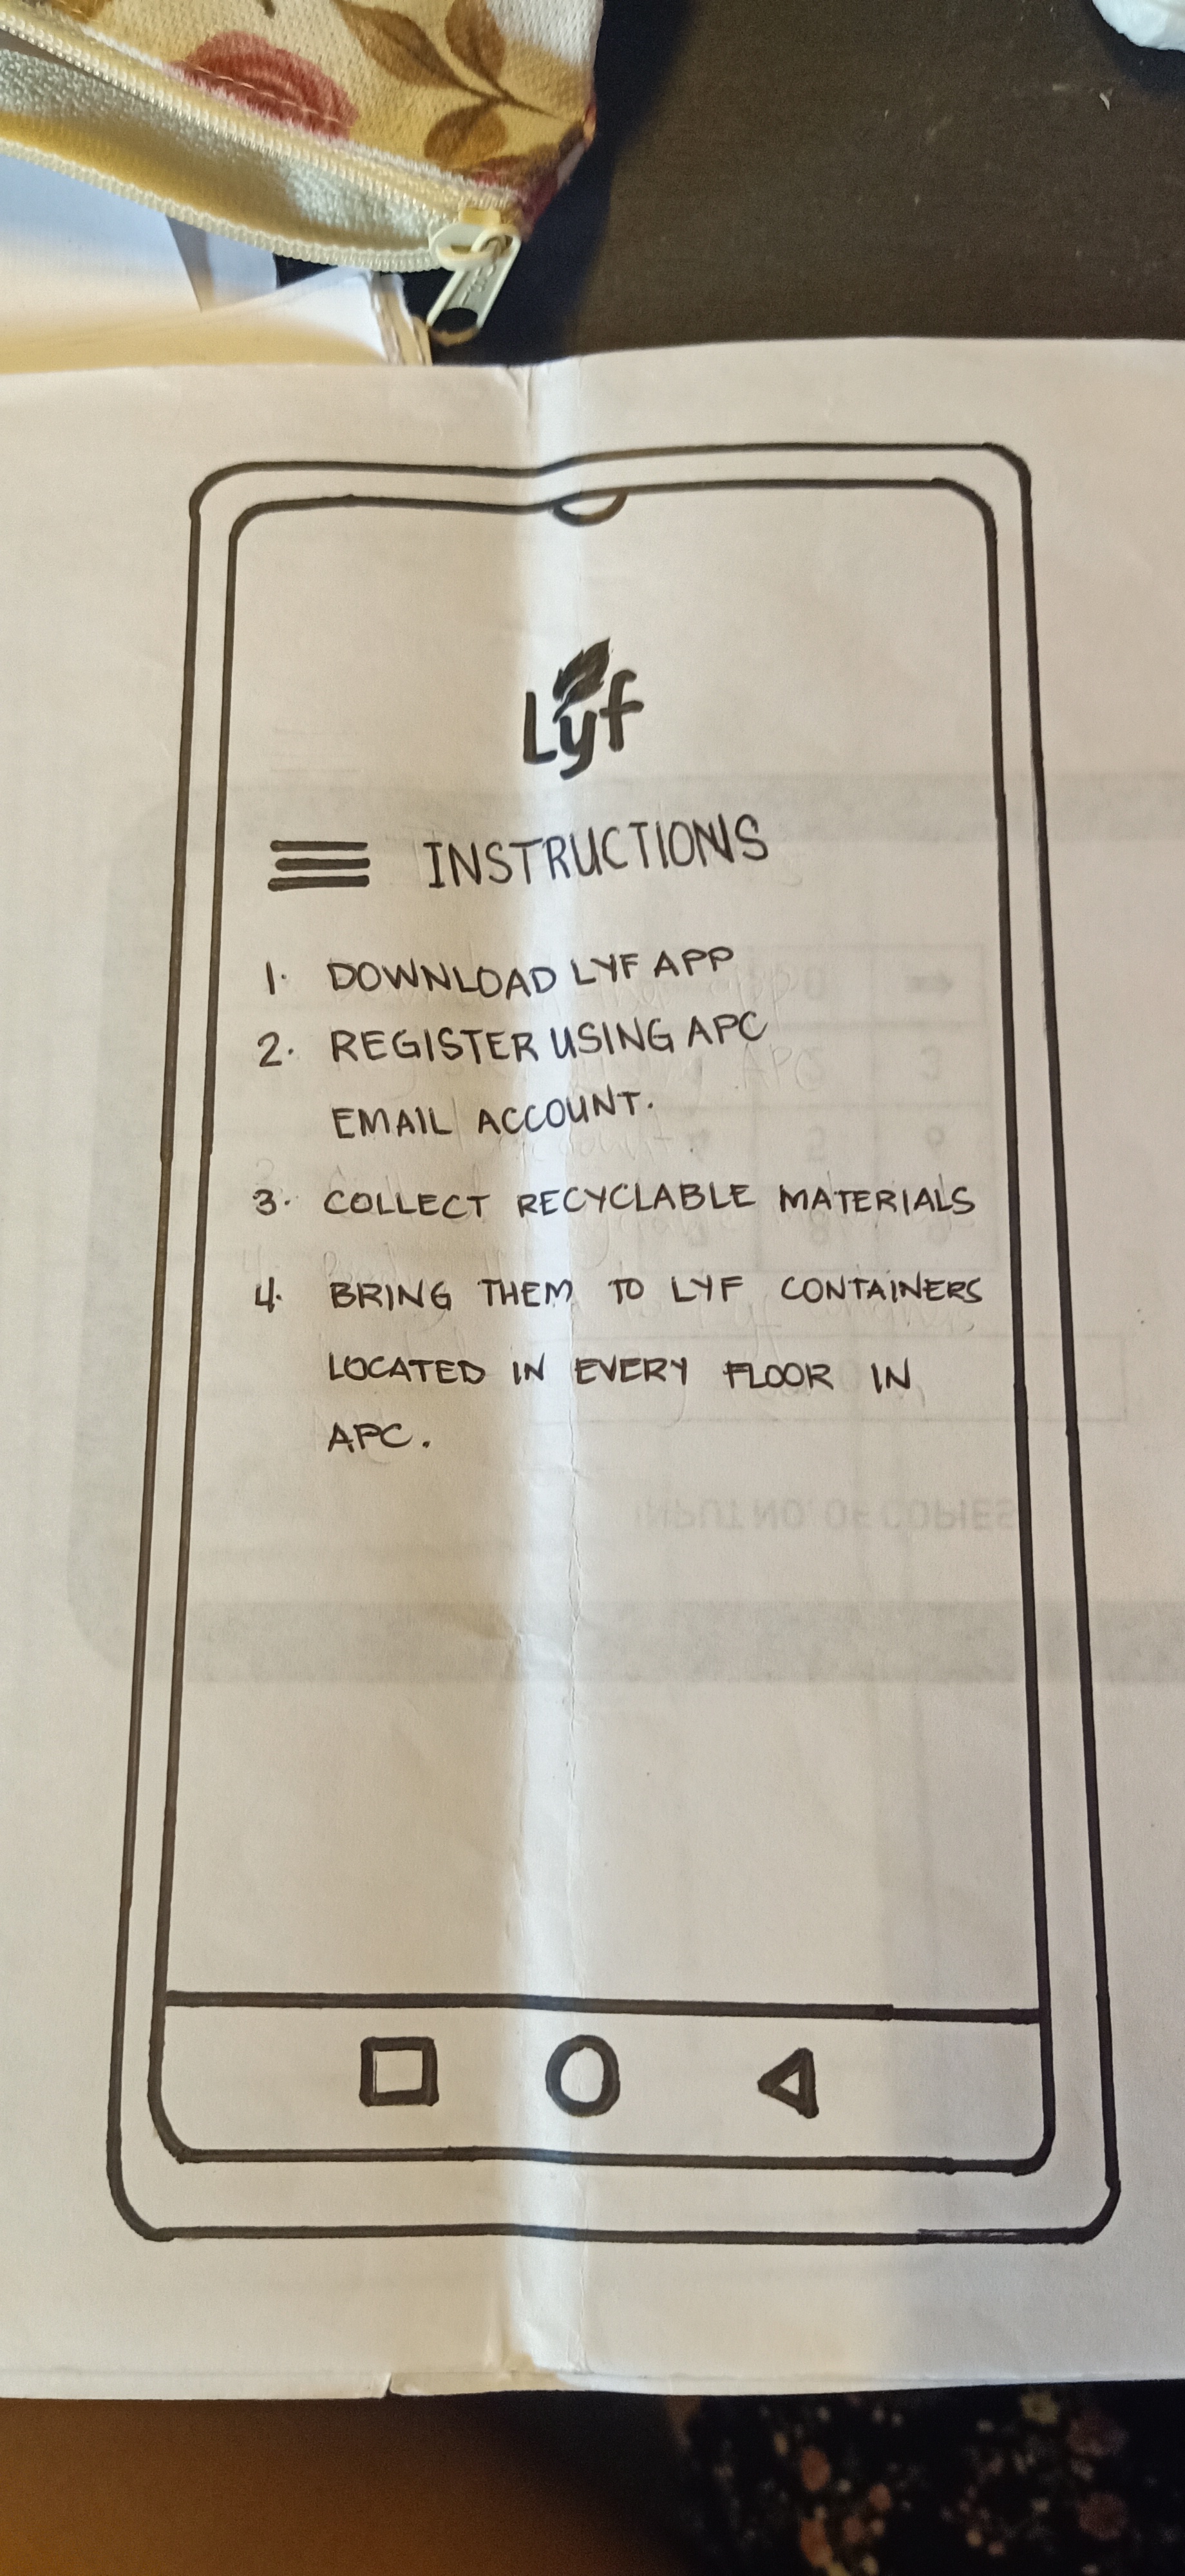 Lyf
INSTRUCTIONS
1. DOWNLOAD LYF APP
2. REGISTER USING APC
EMAIL ACCOUNT.
3. COLLECT RECYCLABLE MATERIALS
4. BRING THEM TO LYF CONTAINERS
LOCATED IN EVERY FLOOR IN
APC.
INPUT NO. OF COPIES